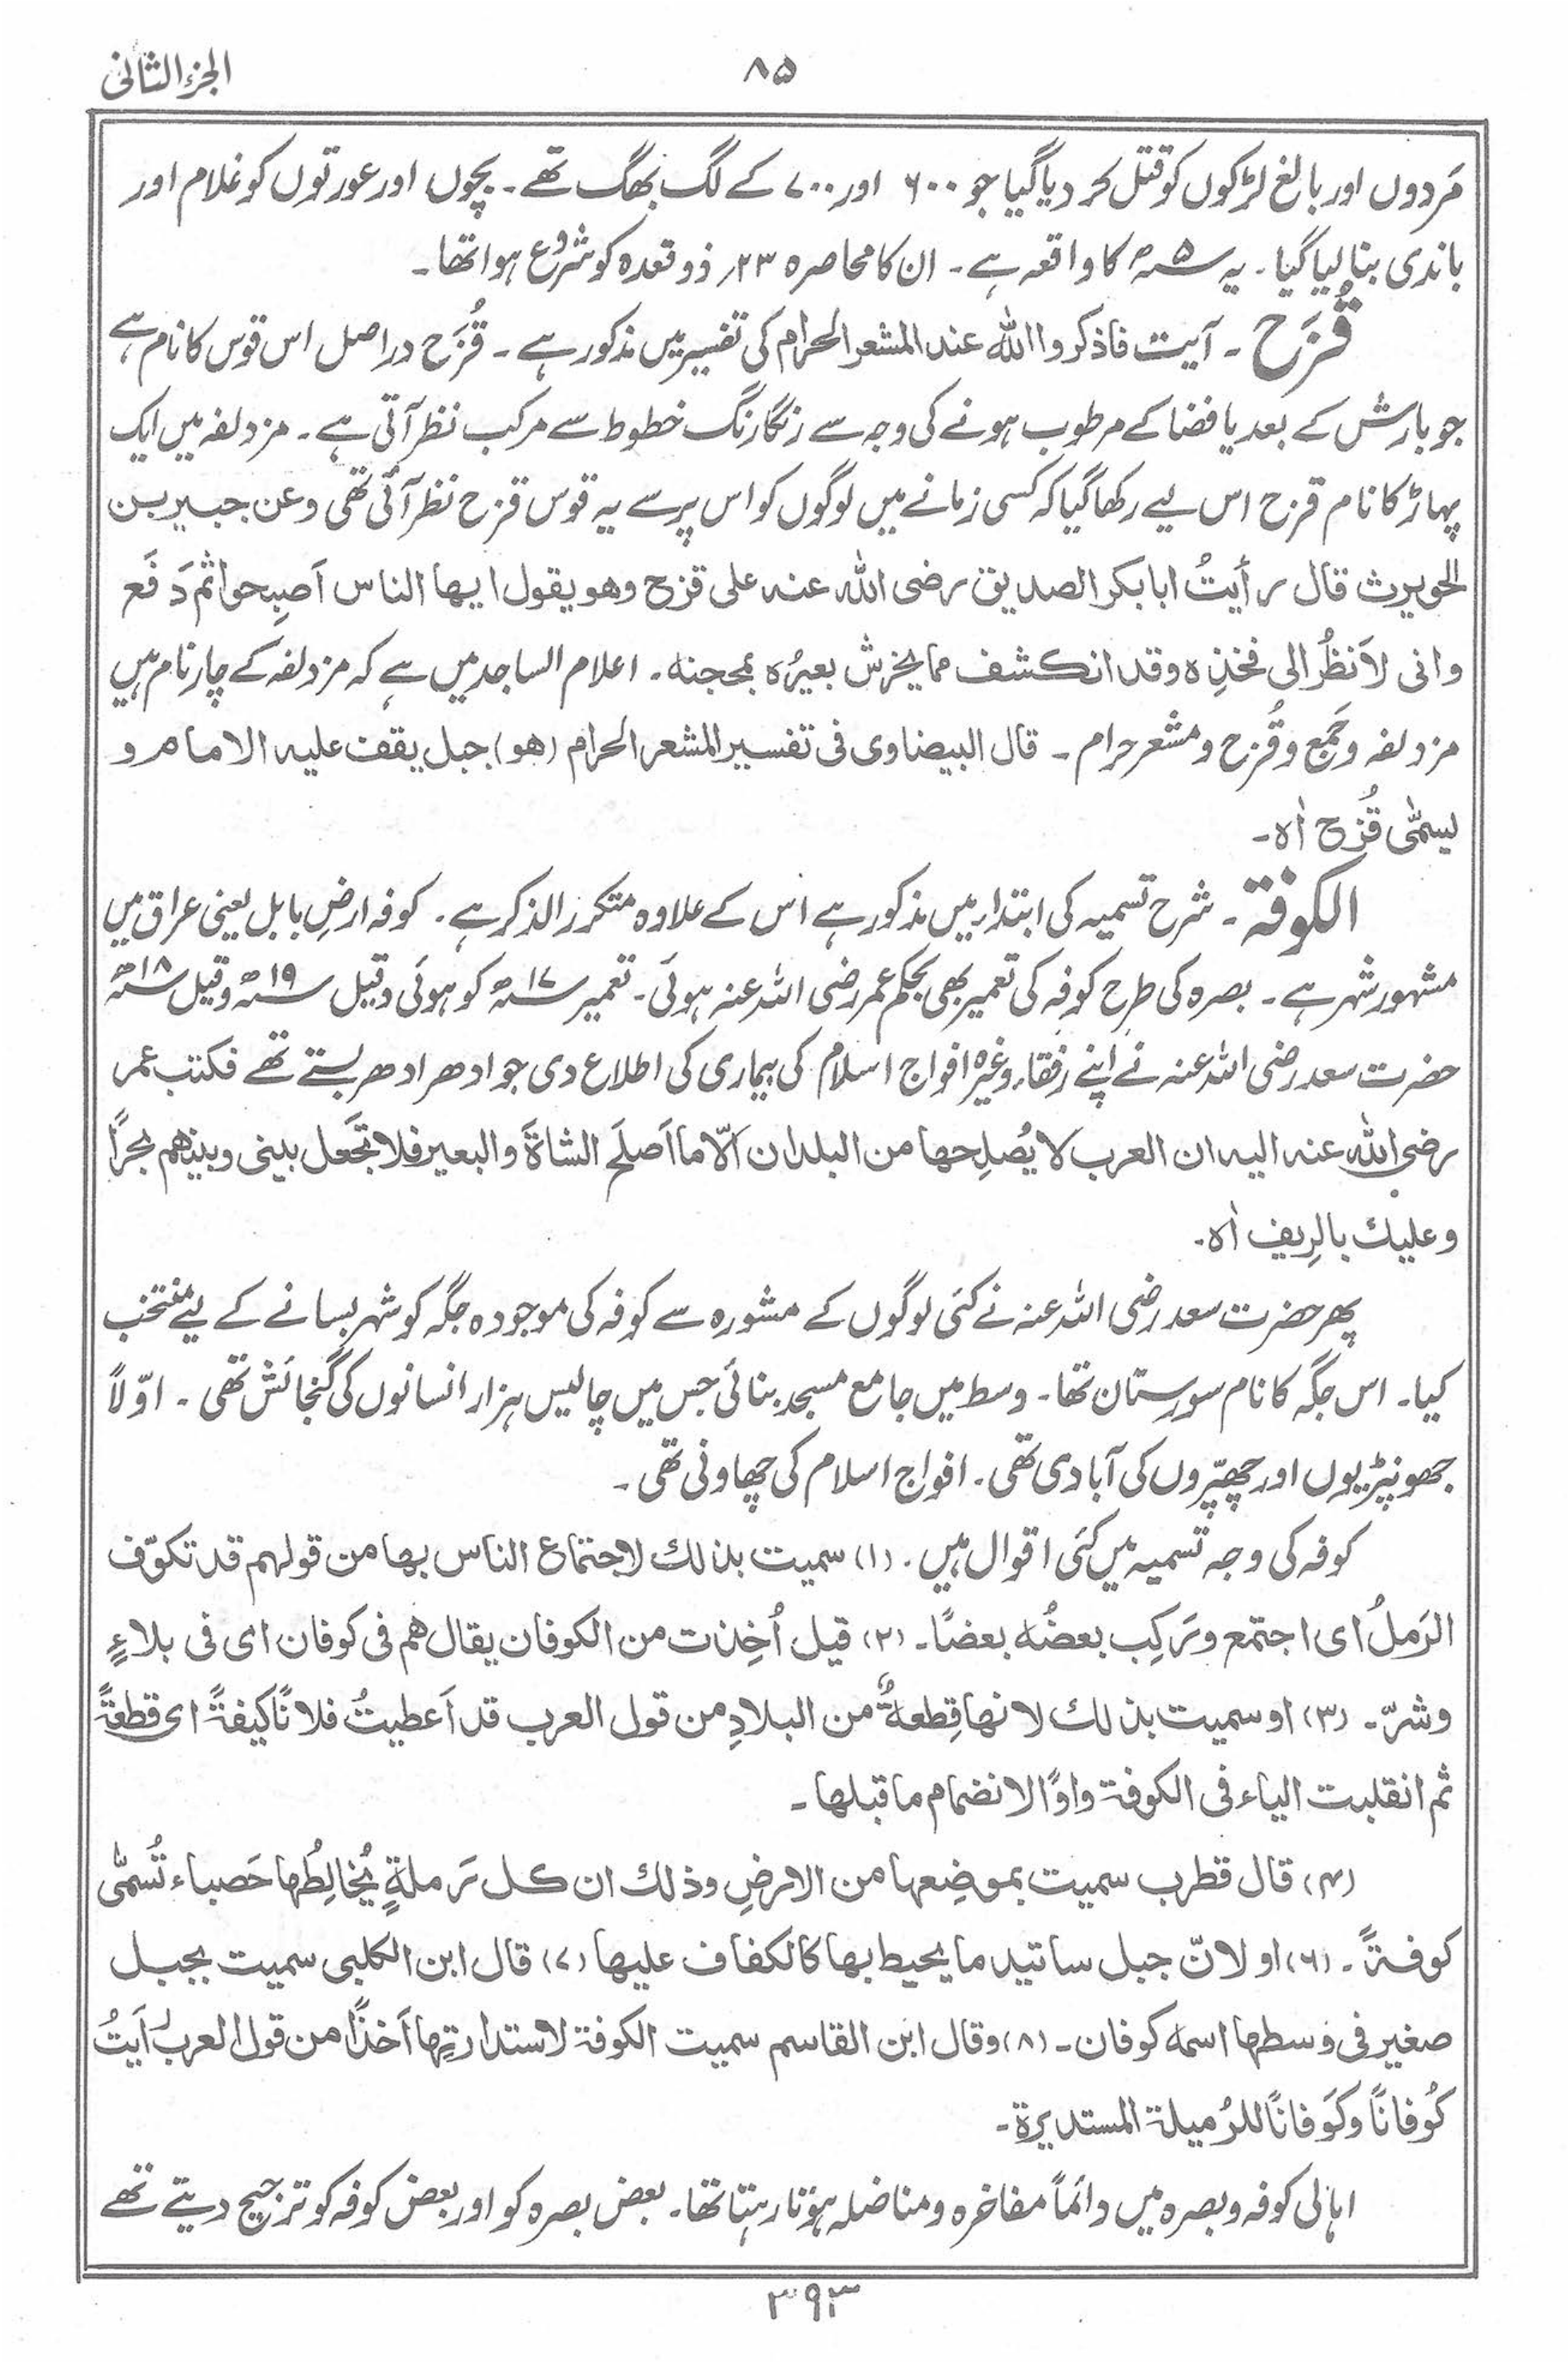 الجزء الثانی
۸۵
مَردوں اور بالغ لڑکوں کو قتل کر دیا گیا جو ۶۰۰ اور ۷۰۰ کے لگ بھگ تھے۔ بچوں اور عورتوں کو غلام اور
باندی بنا لیا گیا۔ یہ ۵ سنہ ھ کا واقعہ ہے۔ ان کا محاصرہ ۲۳؍ ذوقعدہ کو شروع ہوا تھا۔
قُزَح۔ آیت فاذکروا اللہ عند المشعر الحرام کی تفسیر میں مذکور ہے۔ قُزَح دراصل اس قوس کا نام ہے
جو بارش کے بعد یا فضا کے مرطوب ہونے کی وجہ سے رنگارنگ خطوط سے مرکب نظر آتی ہے۔ مزدلفہ میں ایک
پہاڑ کا نام قزح اس لیے رکھا گیا کہ کسی زمانے میں لوگوں کو اس پر سے یہ قوس قزح نظر آئی تھی وعن جبیر بن
الحویرث قال رأیتُ ابابکر الصدیق رضی اللہ عنہ علی قزح وھو یقول ایھا الناس اَصبِحوا ثم دَفَع
وانی لاَنظُر الی فخذِہ وقد انکشف مما یخرش بعیرُہ بمحجنہ۔ اعلام الساجد میں ہے کہ مزدلفہ کے چار نام ہیں
مزدلفہ وجَمع وقُزح ومشعر حرام۔ قال البیضاوی فی تفسیر المشعر الحرام (ھو) جبل یقف علیہ الامام و
یسمّٰی قُزح اٰہ۔
الکوفۃ۔ شرح تسمیہ کی ابتدا میں مذکور ہے اس کے علاوہ متکرر الذکر ہے۔ کوفہ ارضِ بابل یعنی عراق میں
مشہور شہر ہے۔ بصرہ کی طرح کوفہ کی تعمیر بھی بحکم عمر رضی اللہ عنہ ہوئی۔ تعمیر ۱۷ سنہ ھ کو ہوئی وقیل ۱۹ سنہ ھ وقیل ۱۸ سنہ ھ
حضرت سعد رضی اللہ عنہ نے اپنے رفقاء وغیرہ افواج اسلام کی بیماری کی اطلاع دی جو ادھر ادھر بستے تھے فکتب عمر
رضی اللہ عنہ الیہ ان العرب لا یُصلِحھا من البلدان الّا ما اَصلَح الشاۃَ والبعیر فلا تَجعَل بینی وبینھم بحرًا
وعلیك بالرِیف اٰہ۔
پھر حضرت سعد رضی اللہ عنہ نے کئی لوگوں کے مشورہ سے کوفہ کی موجودہ جگہ کو شہر بسانے کے لیے منتخب
کیا۔ اس جگہ کا نام سورستان تھا۔ وسط میں جامع مسجد بنائی جس میں چالیس ہزار انسانوں کی گنجائش تھی۔ اوّلاً
جھونپڑیوں اور چھپّروں کی آبادی تھی۔ افواج اسلام کی چھاونی تھی۔
کوفہ کی وجہ تسمیہ میں کئی اقوال ہیں۔ (۱) سمیت بذلك لاجتماع الناس بھا من قولھم قد تکوّف
الرَملُ ای اجتمع ورَکِب بعضُہ بعضًا۔ (۲) قیل اُخِذت من الکوفان یقال ھم فی کوفان ای فی بلاءٍ
وشرّ۔ (۳) او سمیت بذلك لانھا قِطعۃٌ من البلادِ من قول العرب قد اَعطیتُ فلانًا کیفۃً ای قطعۃً
ثم انقلبت الیاء فی الکوفۃ واوًا لانضمام ما قبلھا۔
(۴) قال قطرب سمیت بموضِعھا من الارضِ وذلك ان کل رَملۃٍ یُخالِطُھا حَصباء تُسمّٰی
کوفۃً۔ (۶) او لانّ جبل ساتیدما یحیط بھا کالکفاف علیھا (۷) قال ابن الکلبی سمیت بجبل
صغیر فی وسطھا اسمہ کوفان۔ (۸) وقال ابن القاسم سمیت الکوفۃ لاستدارتِھا اَخذًا من قول العرب رَاَیتُ
کُوفانًا وکَوَفانًا للرُمیلۃ المستدیرۃ۔
اہالی کوفہ وبصرہ میں دائماً مفاخرہ ومناضلہ ہوتا رہتا تھا۔ بعض بصرہ کو اور بعض کوفہ کو ترجیح دیتے تھے
۳۹۳